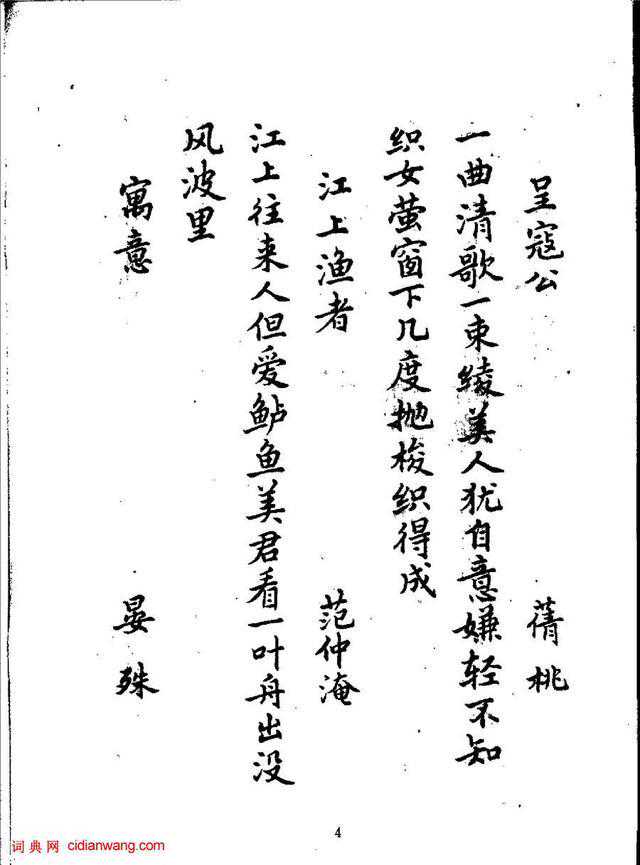 呈寇公 蒨桃
一曲清歌一束绫美人犹自意嫌轻不知
织女萤窗下几度抛梭织得成
江上渔者 范仲淹
江上往来人但爱鲈鱼美君看一叶舟出没
风波里
寓意 晏殊
4
词典网 cidianwang.com